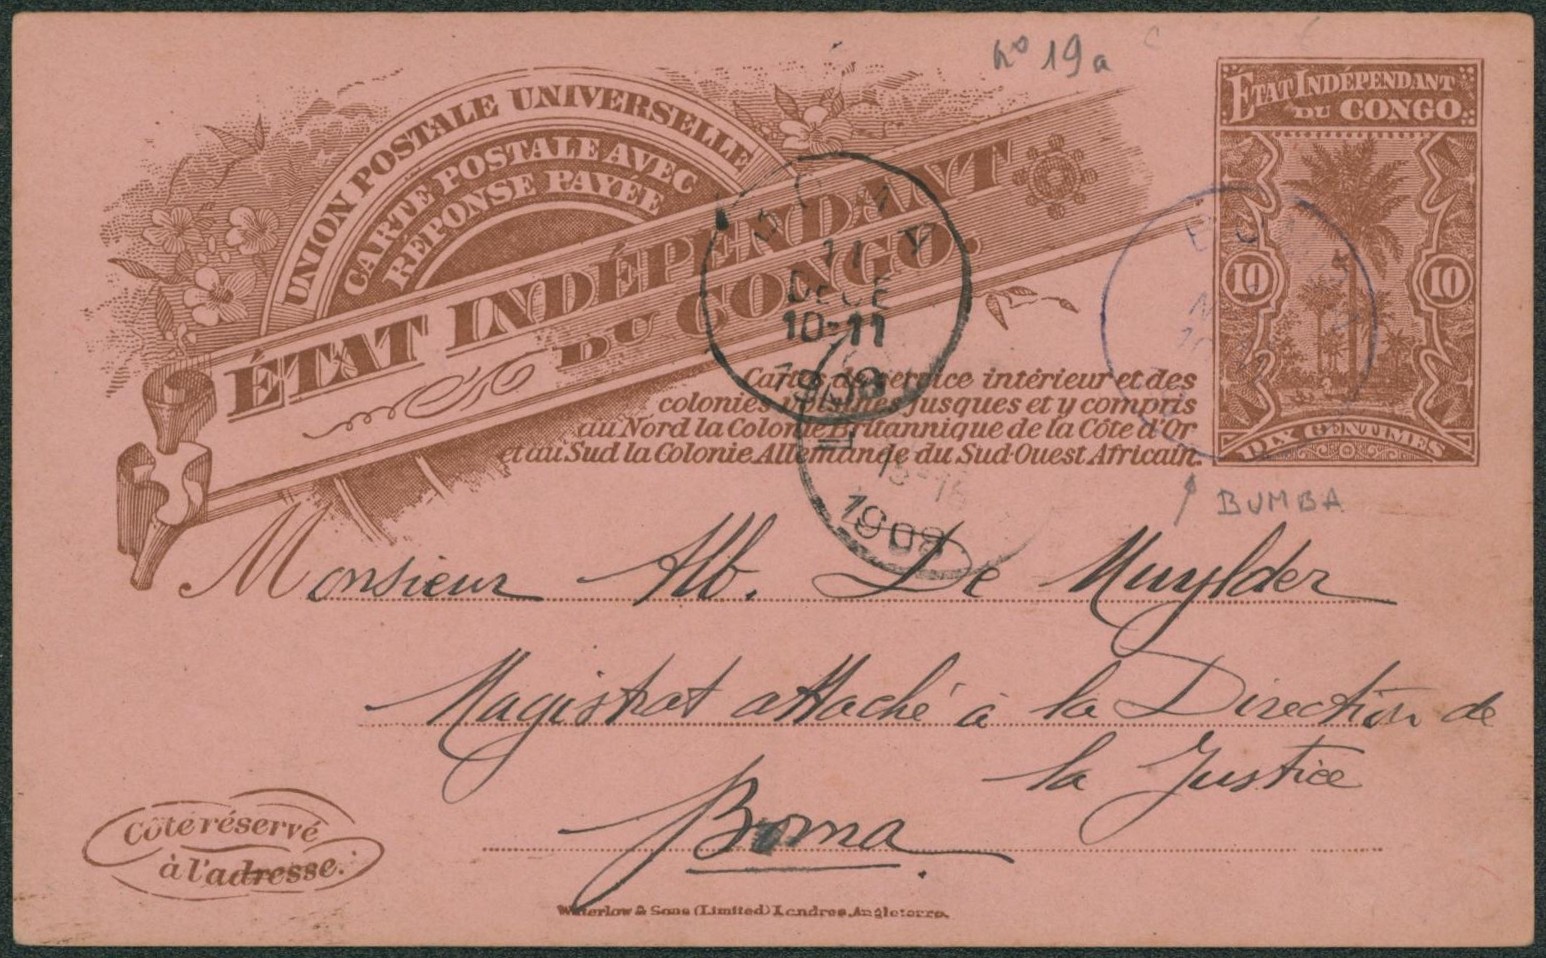 no 19a
UNION POSTALE UNIVERSELLE
CARTE POSTALE AVEC
RÉPONSE PAYÉE
ÉTAT INDÉPENDANT
DU CONGO.
ETAT INDÉPENDANT
DU CONGO
10 10
DIX CENTIMES
11
DECE
10-11
1908
15-16
1908
Carte de service intérieur et des
colonies jusques et y compris
au Nord la Colonie Britannique de la Côte d'Or
et au Sud la Colonie Allemande du Sud-Ouest Africain.
BUMBA
Monsieur Alb. De Muylder
Magistrat attaché à la Direction de
la Justice
Boma.
Côté réservé
à l'adresse.
Waterlow & Sons (Limited) Londres, Angleterre.